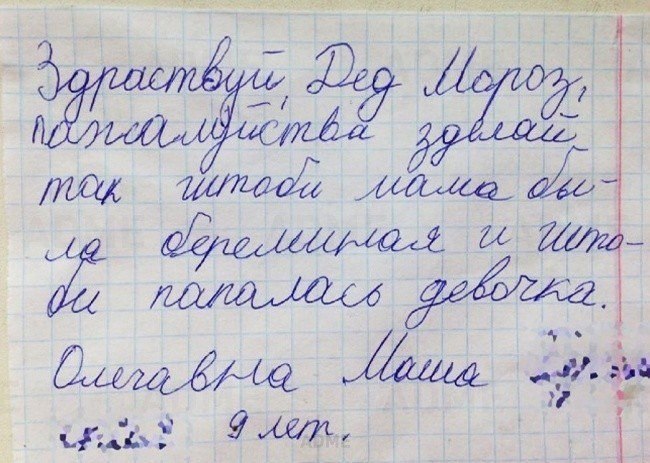 Здраствуй, Дед Мороз,
пажалуйства зделай
так штоби мама бы-
ла береминая и што-
би папалась девочка.
Олечавна Маша
9 лет.